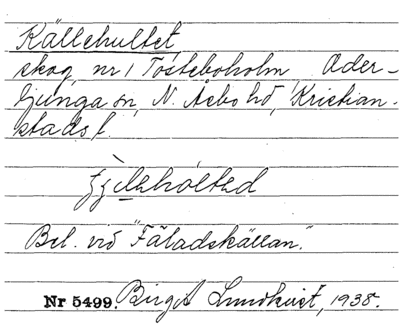 Källehultet
skog nr 1 Tosteboholm, Oder-
ljunga sn, N. Åsbo hd, Kristian-
stads l.
Bel. vid "Fäladskällan".
Nr 5499. Birgit Lundkvist, 1938.